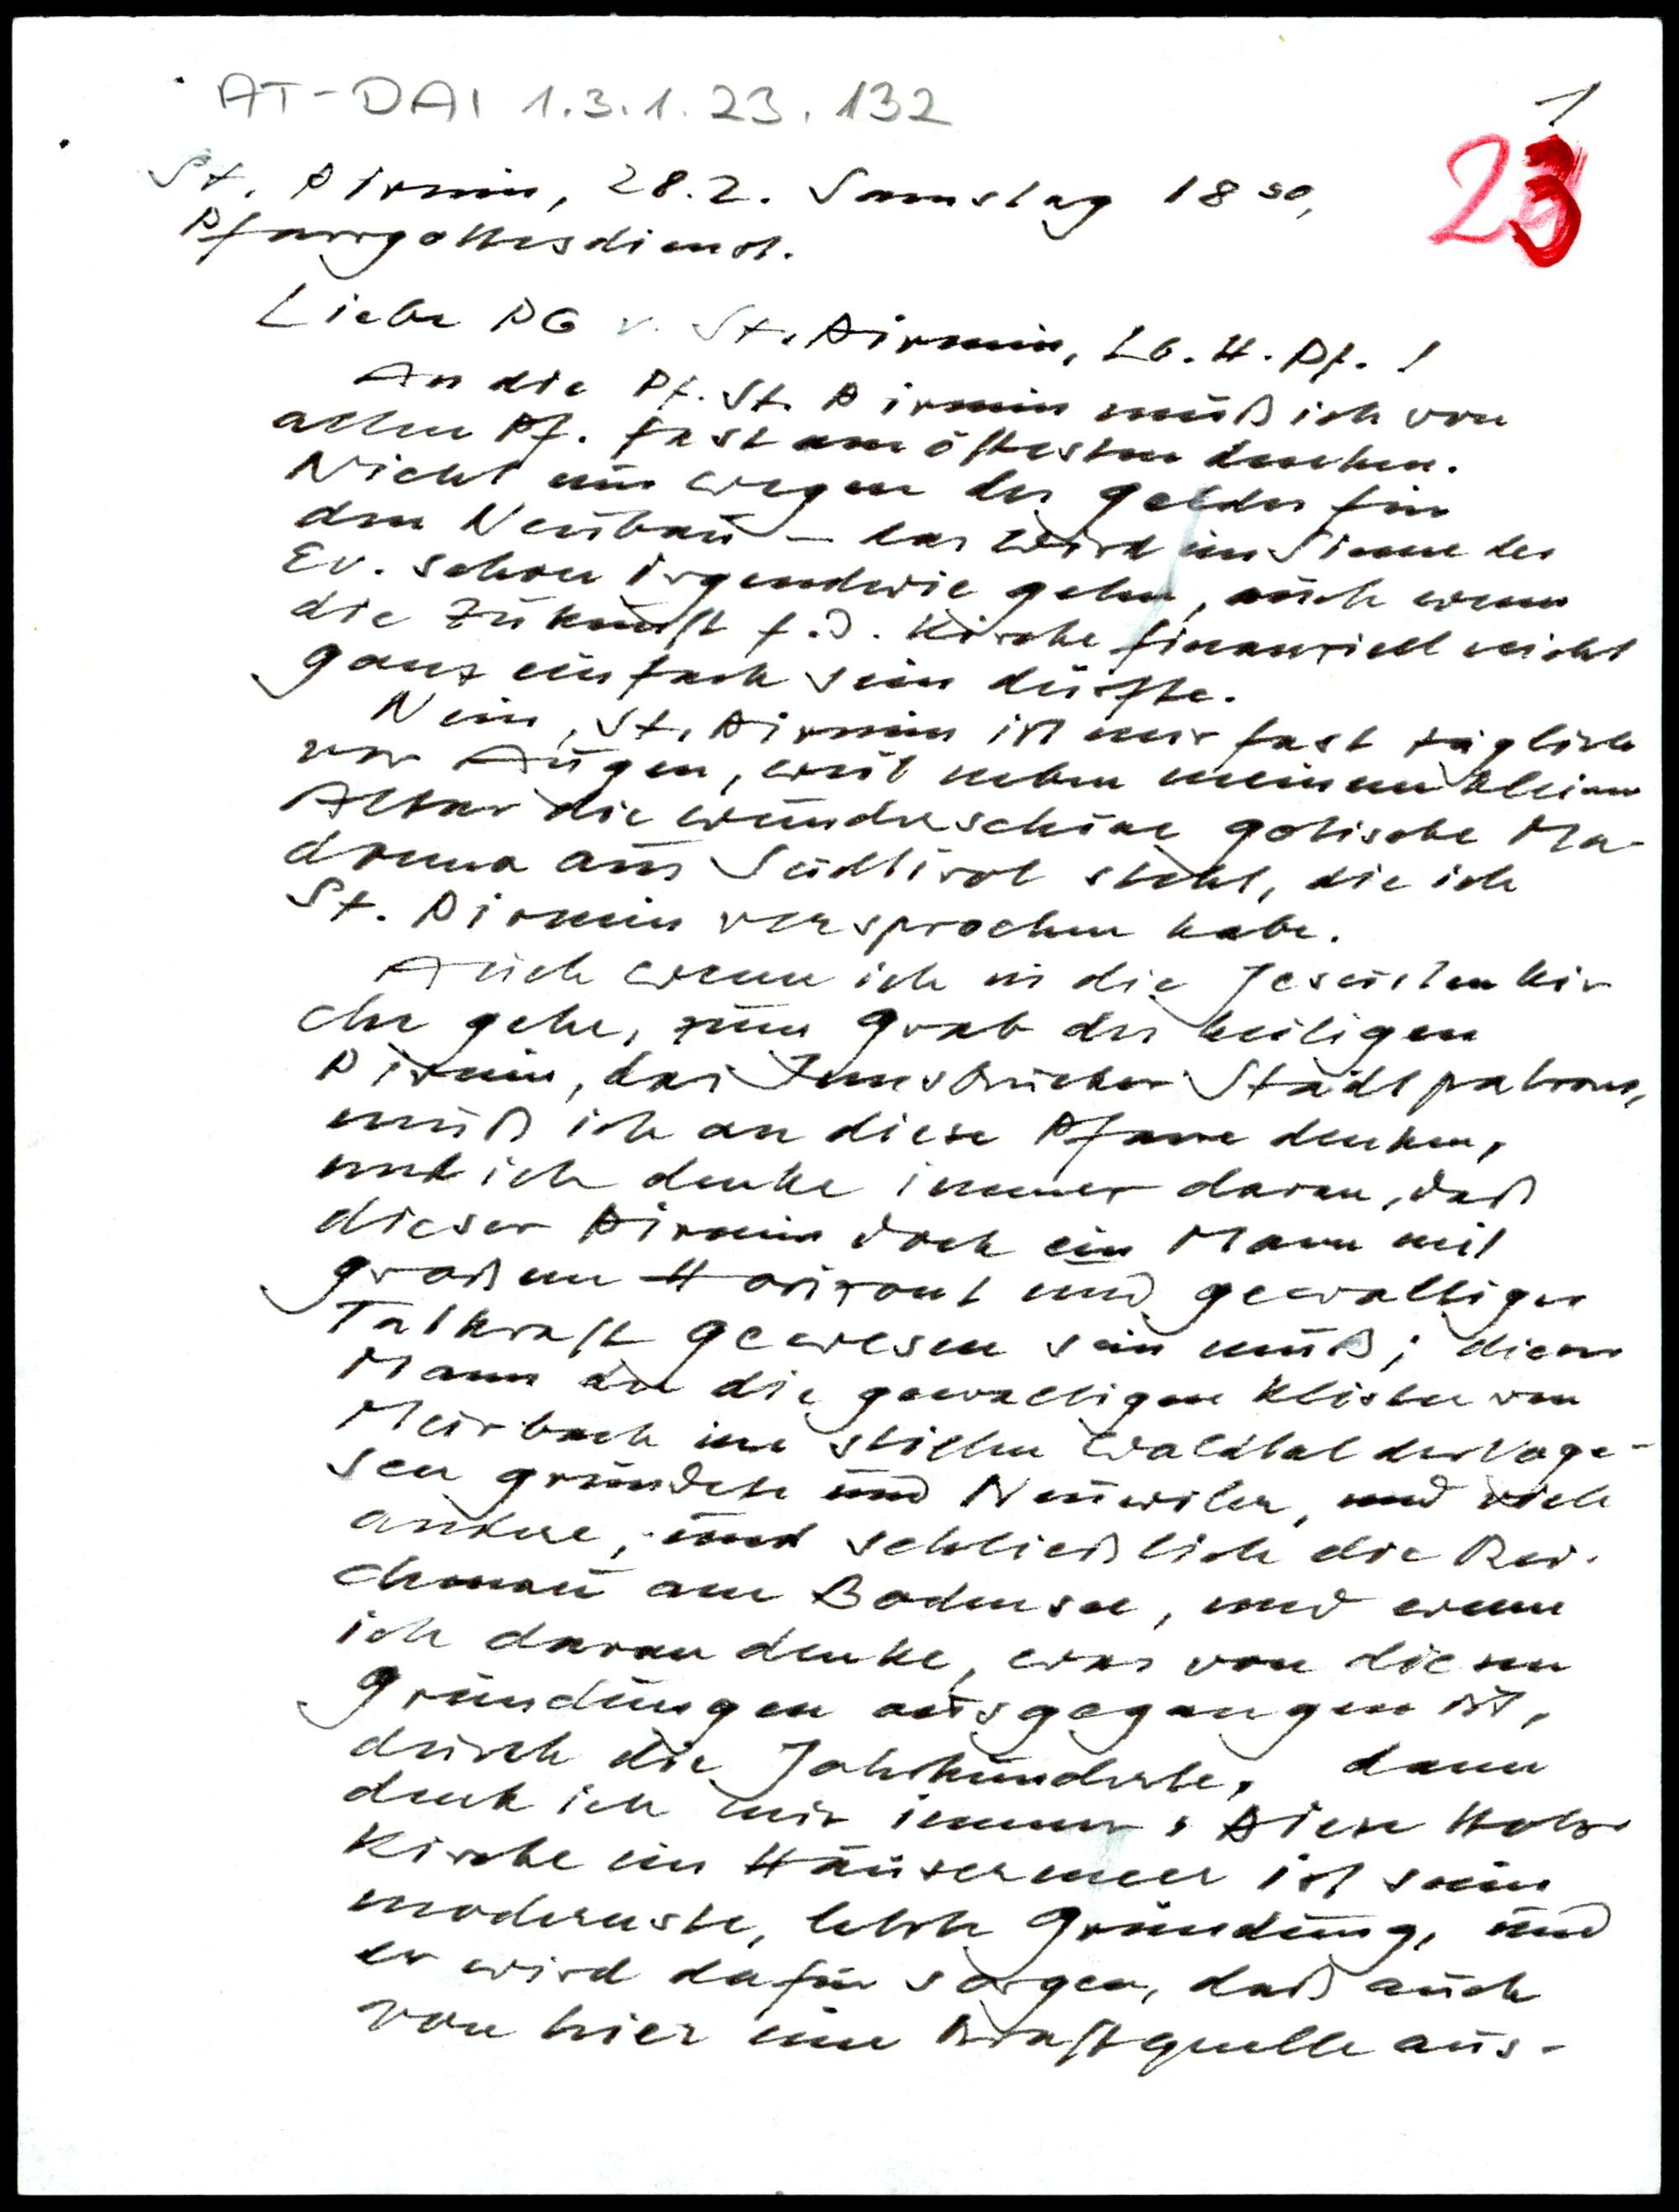 AT-DAI 1.3.1.23.132
1
23
St. Pirmin, 28.2. Samstag 18 30,
Pfarrgottesdienst.
Liebe PG v. St. Pirmin, Lb. H. Pf.!
An die Pf. St. Pirmin muß ich von
allen Pf. fast am öftesten denken.
Nicht nur wegen der Gelder für
den Neubau – das wird im Sinne des
Ev. schon irgendwie gehen, auch wenn
die Zukunft f. d. Kirche finanziell nicht
ganz einfach sein dürfte.
Nein, St. Pirmin ist mir fast täglich
vor Augen, weil neben meinem kleinen
Altar die wunderschöne gotische Ma-
donna aus Südtirol steht, die ich
St. Pirmin versprochen habe.
Auch wenn ich in die Jesuitenkir
che gehe, zum Grab des heiligen
Pirmin, des Innsbrucker Stadtpatrons,
muß ich an diese Pfarre denken,
und ich denke immer daran, daß
dieser Pirmin doch ein Mann mit
großem Horizont und gewaltiger
Tatkraft gewesen sein muß; dieser
Mann der die gewaltigen Klöster von
Murbach im stillen Waldtal der Voge-
sen gründete und Neuwiler, und viele
andere, und schließlich die Rei-
chenau am Bodensee, und wenn
ich daran denke, was von diesen
Gründungen ausgegangen ist,
durch die Jahrhunderte, dann
denk ich mir immer: Diese Holz-
kirche im Häusermeer ist seine
modernste, letzte Gründung, und
er wird dafür sorgen, daß auch
von hier eine Kraftquelle aus-